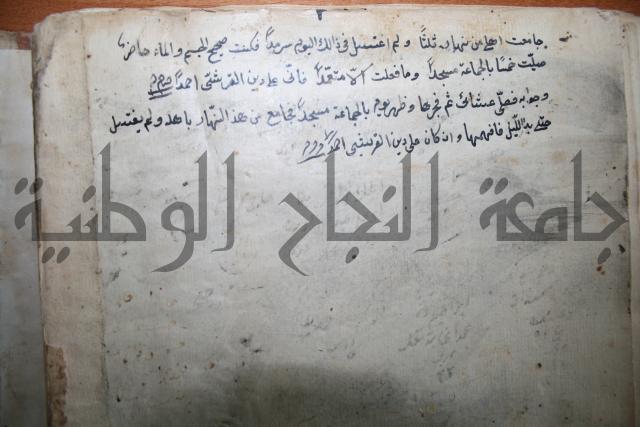 جامعت اهلي من نهارك ثلثًا ولم اغتسل في ذالك اليوم سرمدًا فكنت صحيح الجسم والماء حاضرًا
صليت خمسًا بالجماعة مسجدًا وما فعلت الا متعمدًا فاني على دين القرشي احمدا
وجوابه فصلى عشائك ثم فجرها وظهر يوم بالجماعة مسجدًا فجامع من هذ النهار باهله ولم يغتسل
حتى بدا الليل فافهمها وان كان على دين القريشي احمدا
جامعة النجاح الوطنية